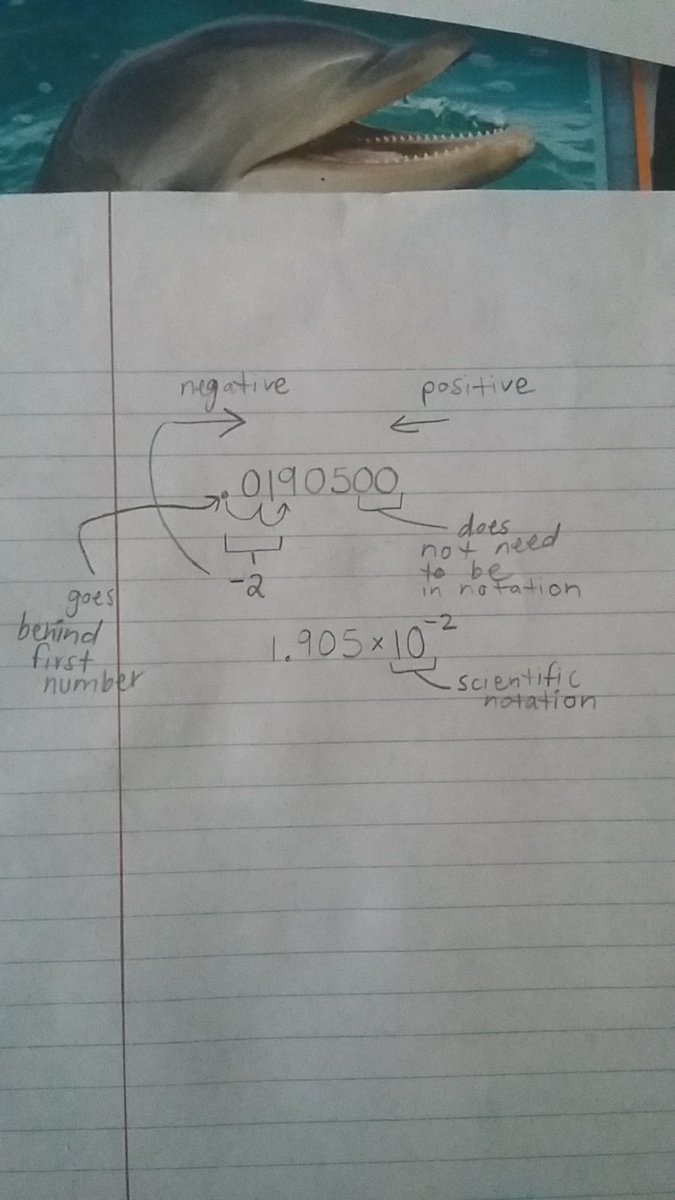 negative
positive
.0190500
-2
does
not need
to be
in notation
goes
behind
first
number
1.905 × 10⁻²
scientific
notation